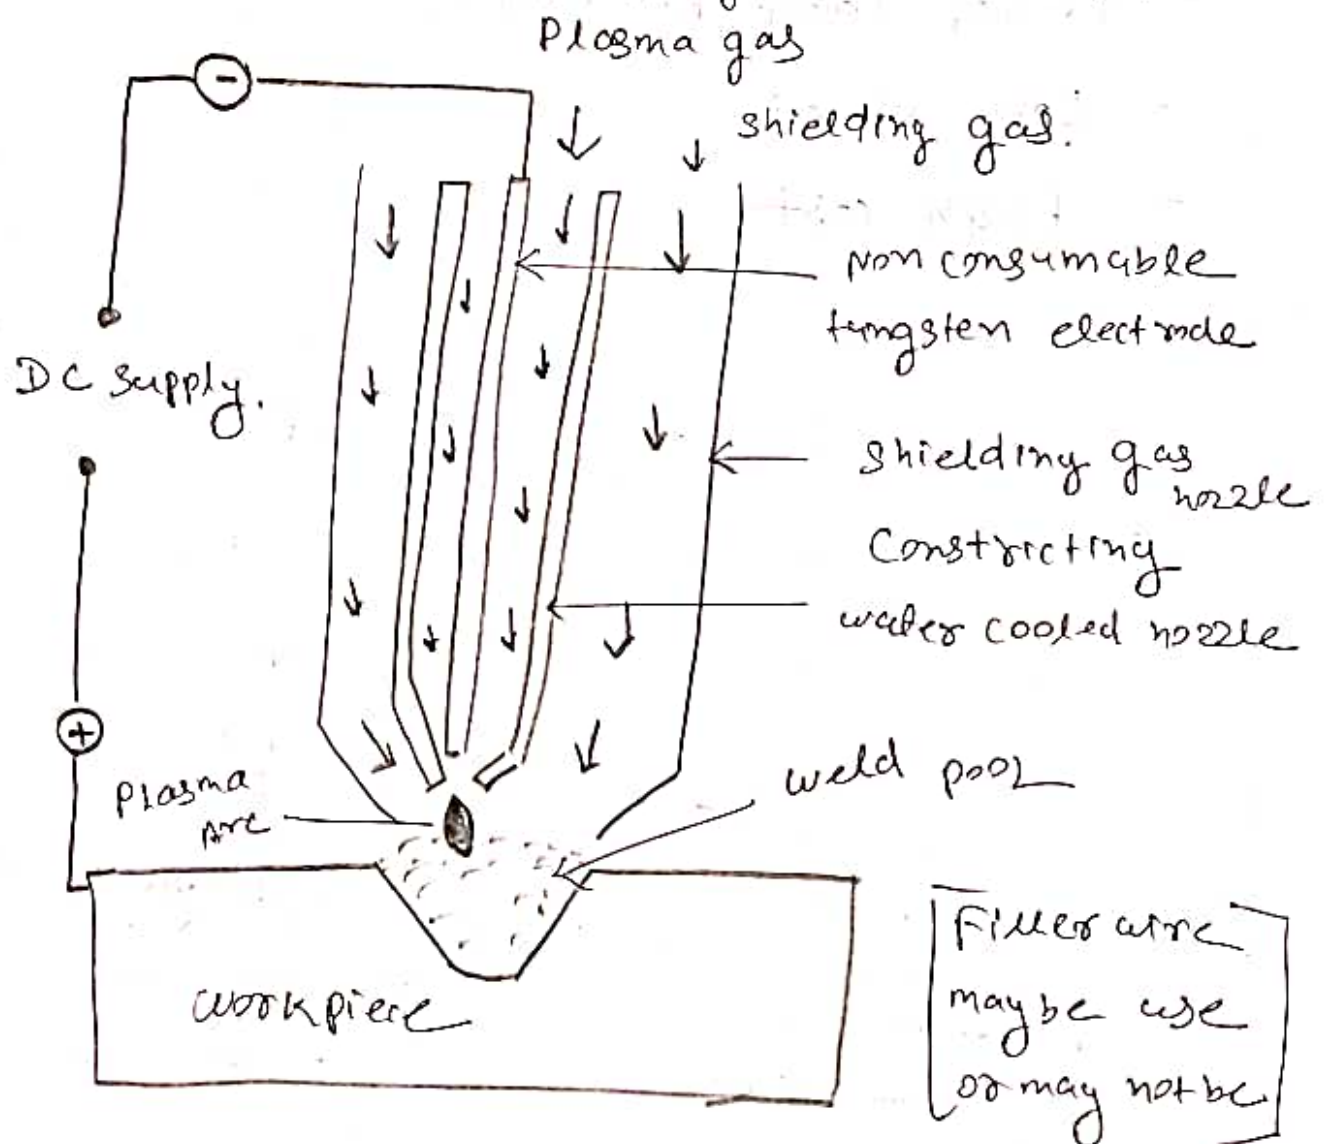 Plasma gas
shielding gas.
-
Non consumable
tungsten electrode
DC supply.
shielding gas
nozzle
Constricting
water cooled nozzle
+
weld pool
Plasma
Arc
workpiece
Filler wire
may be use
or may not be